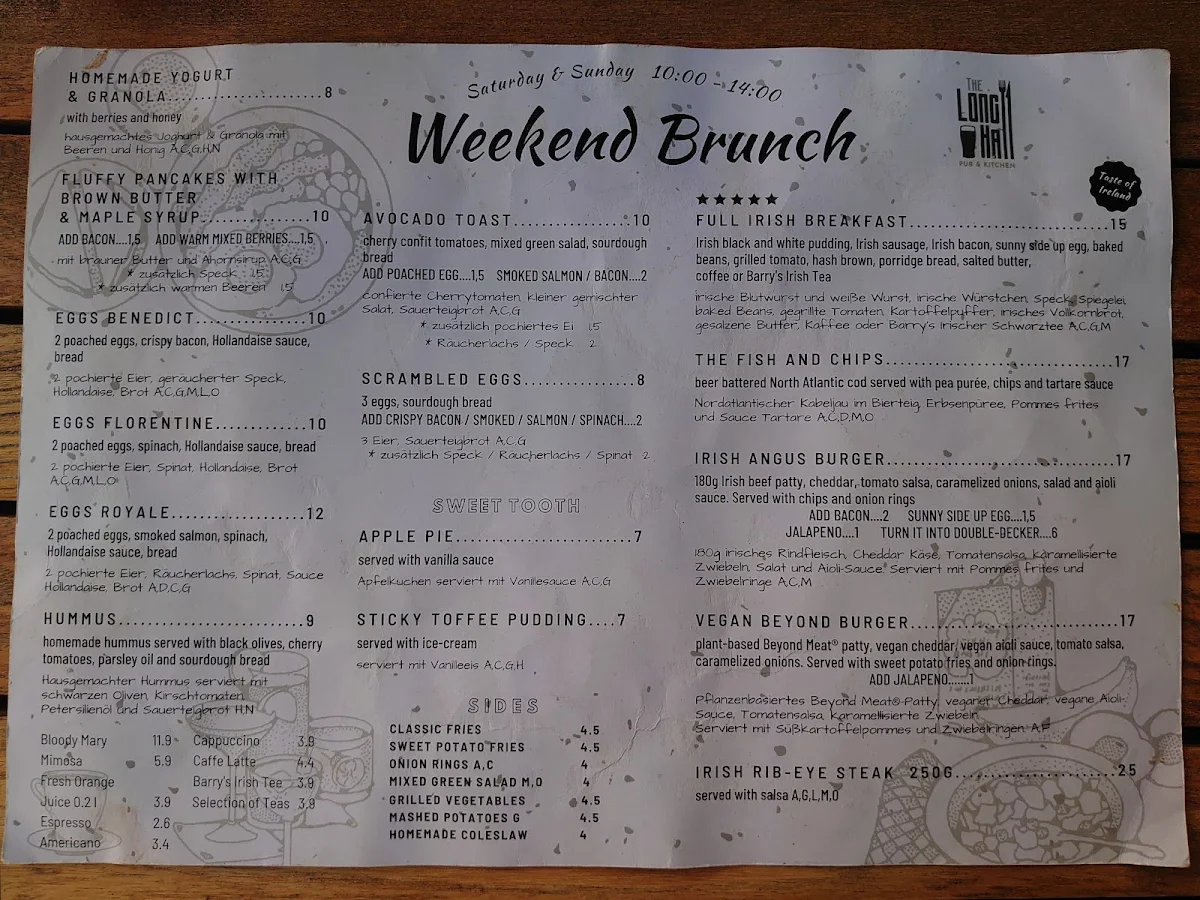 Saturday & Sunday 10:00 - 14:00
Weekend Brunch
THE
LONG
HALL
PUB & KITCHEN
Taste of
Ireland
HOMEMADE YOGURT
& GRANOLA.......................8
with berries and honey
hausgemachtes Joghurt & Granola mit
Beeren und Honig A,C,G,H,N
FLUFFY PANCAKES WITH
BROWN BUTTER
& MAPLE SYRUP................10
ADD BACON....1,5 ADD WARM MIXED BERRIES....1,5
mit brauner Butter und Ahornsirup A,C,G
* zusätzlich Speck 1,5
* zusätzlich warmen Beeren 1,5
EGGS BENEDICT.................10
2 poached eggs, crispy bacon, Hollandaise sauce,
bread
2 pochierte Eier, geräucherter Speck,
Hollandaise, Brot A,C,G,M,L,O
EGGS FLORENTINE..............10
2 poached eggs, spinach, Hollandaise sauce, bread
2 pochierte Eier, Spinat, Hollandaise, Brot
A,C,G,M,L,O
EGGS ROYALE....................12
2 poached eggs, smoked salmon, spinach,
Hollandaise sauce, bread
2 pochierte Eier, Räucherlachs, Spinat, Sauce
Hollandaise, Brot A,D,C,G
HUMMUS............................9
homemade hummus served with black olives, cherry
tomatoes, parsley oil and sourdough bread
Hausgemachter Hummus serviert mit
schwarzen Oliven, Kirschtomaten,
Petersilienöl und Sauerteigbrot H,N
Bloody Mary 11.9
Mimosa 5.9
Fresh Orange
Juice 0.2 l 3.9
Espresso 2.6
Americano 3.4
Cappuccino 3.9
Caffe Latte 4.4
Barry's Irish Tee 3.9
Selection of Teas 3.9
AVOCADO TOAST....................10
cherry confit tomatoes, mixed green salad, sourdough
bread
ADD POACHED EGG....1,5 SMOKED SALMON / BACON....2
confierte Cherrytomaten, kleiner gemischter
Salat, Sauerteigbrot A,C,G
* zusätzlich pochiertes Ei 1,5
* Räucherlachs / Speck 2
SCRAMBLED EGGS.................8
3 eggs, sourdough bread
ADD CRISPY BACON / SMOKED / SALMON / SPINACH....2
3 Eier, Sauerteigbrot A,C,G
* zusätzlich Speck / Räucherlachs / Spinat 2
SWEET TOOTH
APPLE PIE..........................7
served with vanilla sauce
Apfelkuchen serviert mit Vanillesauce A,C,G
STICKY TOFFEE PUDDING....7
served with ice-cream
serviert mit Vanilleeis A,C,G,H
SIDES
CLASSIC FRIES 4.5
SWEET POTATO FRIES 4.5
ONION RINGS A,C 4
MIXED GREEN SALAD M,O 4
GRILLED VEGETABLES 4.5
MASHED POTATOES G 4.5
HOMEMADE COLESLAW 4
FULL IRISH BREAKFAST..............................15
Irish black and white pudding, Irish sausage, Irish bacon, sunny side up egg, baked
beans, grilled tomato, hash brown, porridge bread, salted butter,
coffee or Barry's Irish Tea
irische Blutwurst und weiße Wurst, irische Würstchen, Speck, Spiegelei,
baked Beans, gegrillte Tomaten, Kartoffelpuffer, irisches Vollkornbrot,
gesalzene Butter, Kaffee oder Barry's Irischer Schwarztee A,C,G,M
THE FISH AND CHIPS.................................17
beer battered North Atlantic cod served with pea purée, chips and tartare sauce
Nordatlantischer Kabeljau im Bierteig, Erbsenpüree, Pommes frites
und Sauce Tartare A,C,D,M,O
IRISH ANGUS BURGER.................................17
180g Irish beef patty, cheddar, tomato salsa, caramelized onions, salad and aioli
sauce. Served with chips and onion rings
ADD BACON....2 SUNNY SIDE UP EGG....1,5
JALAPENO....1 TURN IT INTO DOUBLE-DECKER....6
180g irisches Rindfleisch, Cheddar Käse, Tomatensalsa, karamellisierte
Zwiebeln, Salat und Aioli-Sauce. Serviert mit Pommes frites und
Zwiebelringe A,C,M
VEGAN BEYOND BURGER..............................17
plant-based Beyond Meat® patty, vegan cheddar, vegan aioli sauce, tomato salsa,
caramelized onions. Served with sweet potato fries and onion rings.
ADD JALAPENO.......1
Pflanzenbasiertes Beyond Meat®-Patty, veganer Cheddar, vegane Aioli-
Sauce, Tomatensalsa, karamellisierte Zwiebeln
Serviert mit Süßkartoffelpommes und Zwiebelringen A,F
IRISH RIB-EYE STEAK 250G........................25
served with salsa A,G,L,M,O